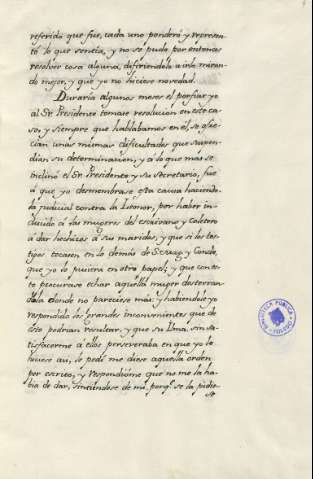 referido que fue, cada uno ponderó y represen-
tó lo que sentia, y no se pudo por entonces
resolver cosa alguna, difiriendolo a irlo miran-
do mejor, y que yo no hiciese novedad.
Duraría algunos meses el porfiar yo
al Sr. Presidente tomase resolucion en este ca-
so, y siempre que hablabamos en él, se ofre-
cian unas mismas dificultades que suspen-
dian su determinacion, y a lo que mas se
inclinó el Sr. Presidente y su Secretario, fue
á que yo desmembrase esta causa hacien-
dola parcial contra la Lionor, por haber in-
ducido á las mugeres del escribano y
á dar hechizos á sus maridos, y que si los tes-
tigos tocasen en lo demás de y Conde,
que yo lo pusiera en otro papel; y que con es-
to procurase echar aquella muger desterran-
dola donde no pareciese más: y habiendole yo
respondido los grandes inconvenientes que de
esto podrian resultar, y que su Ilma. sin sa-
tisfacerme á ellos perseveraba en que yo lo
hiciese asi, le pedí me diese aquella orden
por escrito, y respondióme que no me la ha-
bia de dar, sintiendose de mi porq.e se la pidie-
se
BIBLIOTECA PÚBLICA
TOLEDO